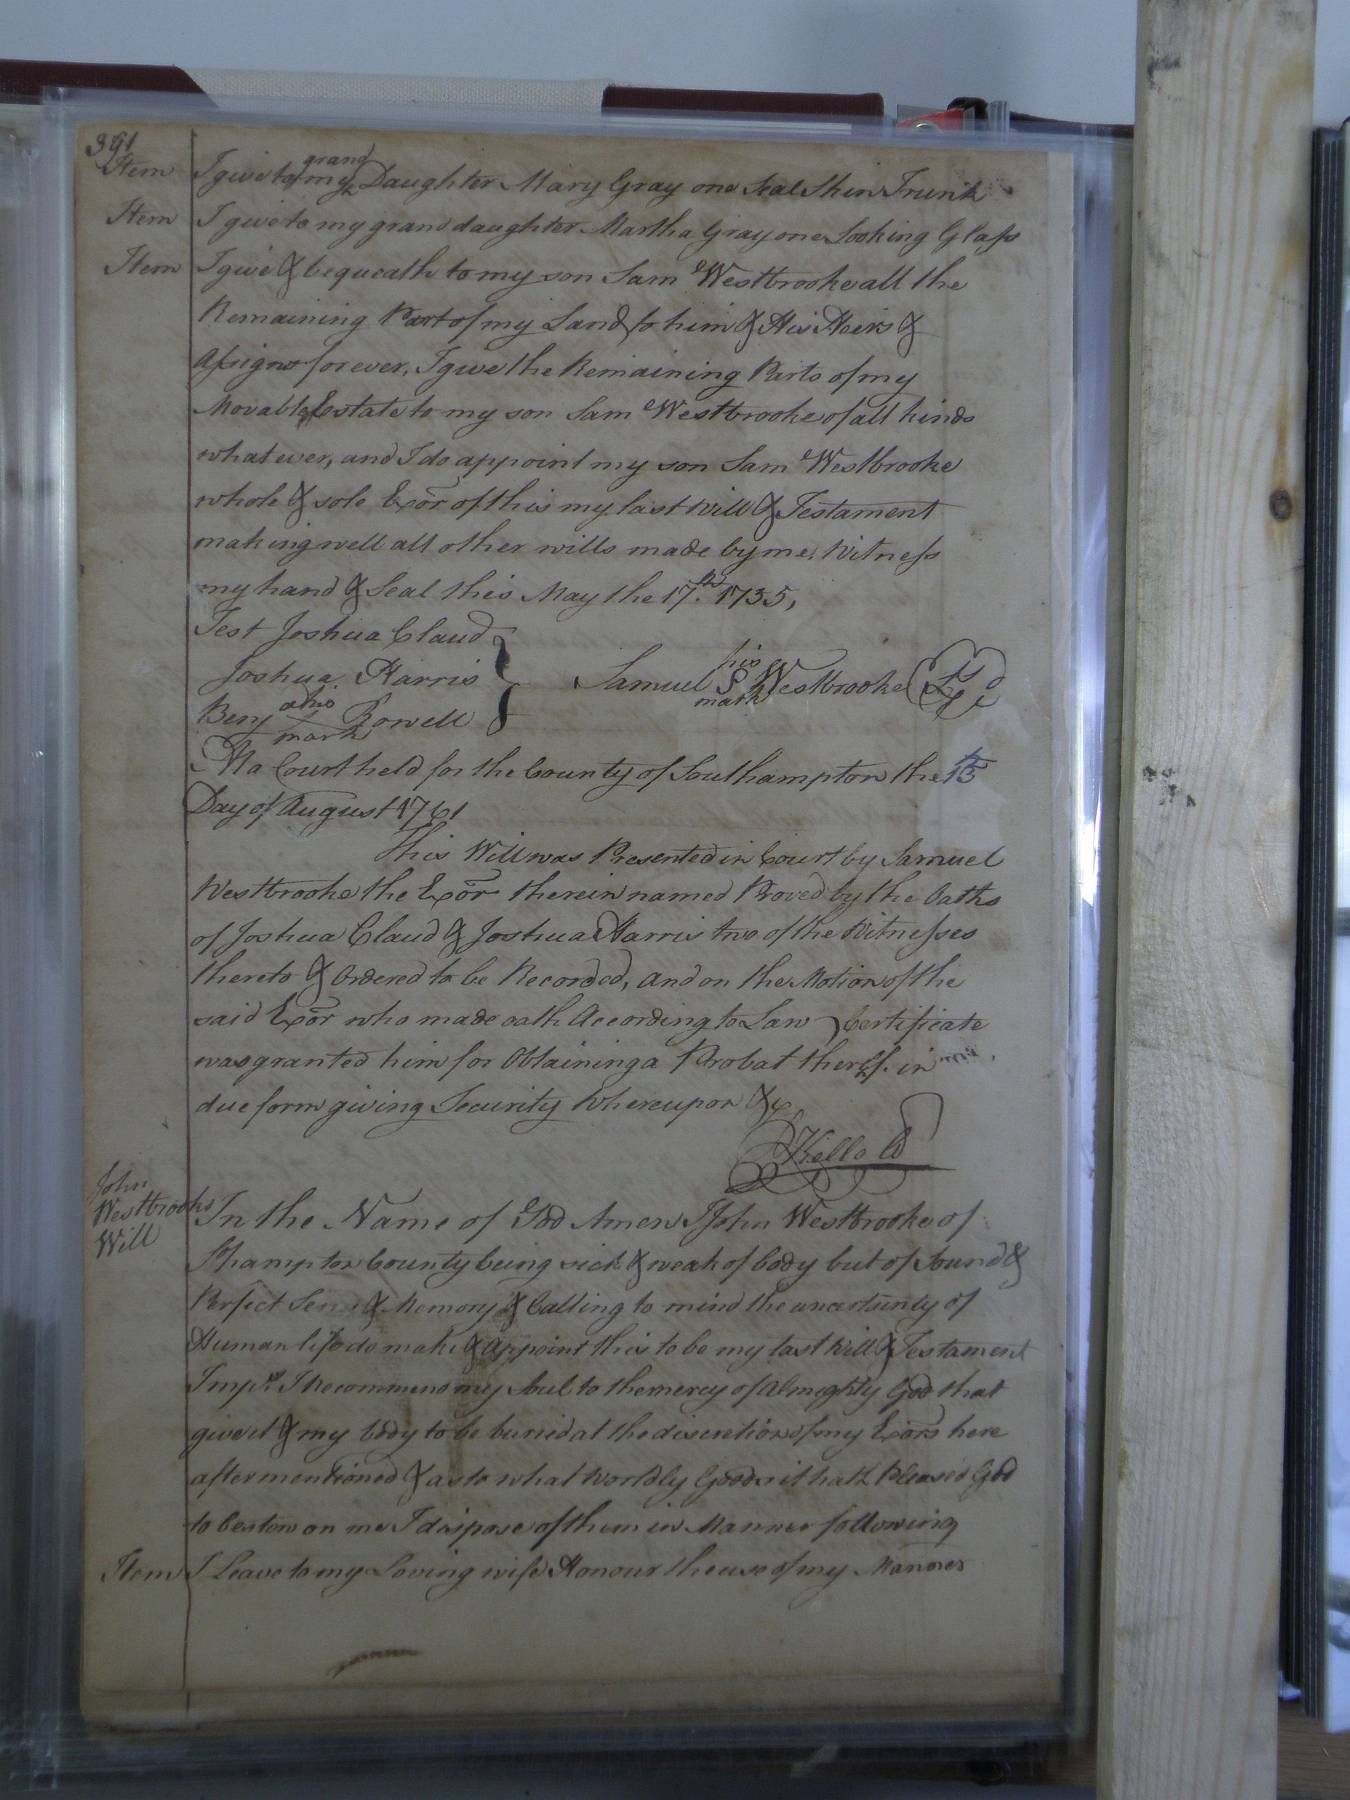 391
Item I give to my grand Daughter Mary Gray one Seal Skin Trunk
Item I give to my grand daughter Martha Gray one Looking Glass
Item I give & bequeath to my son Sam Westbrooke all the
Remaining Part of my Land to him & His Heirs &
Assigns forever, I give the Remaining Parts of my
Movable Estate to my son Sam Westbrooke of all kinds
whatever, and I do appoint my son Sam Westbrooke
whole & sole Exor of this my last Will & Testament
making well all other wills made by me, Witness
my hand & Seal this May the 17th. 1735,
Test Joshua Claud
Joshua Harris
Samuel his S mark Westbrooke (LS)
Benj his mark Rowell
At a Court held for the County of Southampton the 13th
Day of August 1761
This Will was Presented in Court by Samuel
Westbrooke the Exor therein named Proved by the Oaths
of Joshua Claud & Joshua Harris two of the Witnesses
thereto & Ordered to be Recorded, and on the Motion of the
said Exor who made oath According to Law Certificate
was granted him for Obtaining a Probat thereof. in
due form giving Security Whereupon &c
Kello
John
Westbrooks
Will
In the Name of God Amen I John Westbrooke of
Shampton County being sick & weak of body but of Sound &
Perfect Sense & Memory & Calling to mind the uncertainty of
Human life do make & appoint this to be my last Will & Testament
Imps. I Recommend my Soul to the mercy of Almighty God that
give it & my body to be buried at the discretion of my Exors here
after mentioned & as to what Worldly Goods it hath Pleased God
to bestow on me I dispose of them in Manner following
Item I Leave to my Loving wife Honour the use of my Manner